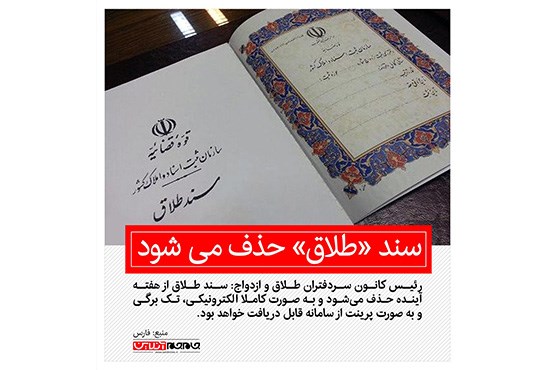 قوهٔ قضائیه
سازمان ثبت اسناد و املاک کشور
سند طلاق
سند «طلاق» حذف می شود
رئیس کانون سردفتران طلاق و ازدواج: سند طلاق از هفته
آینده حذف می‌شود و به صورت کاملا الکترونیکی، تک برگی
و به صورت پرینت از سامانه قابل دریافت خواهد بود.
منبع: فارس
جام‌جم آنلاین